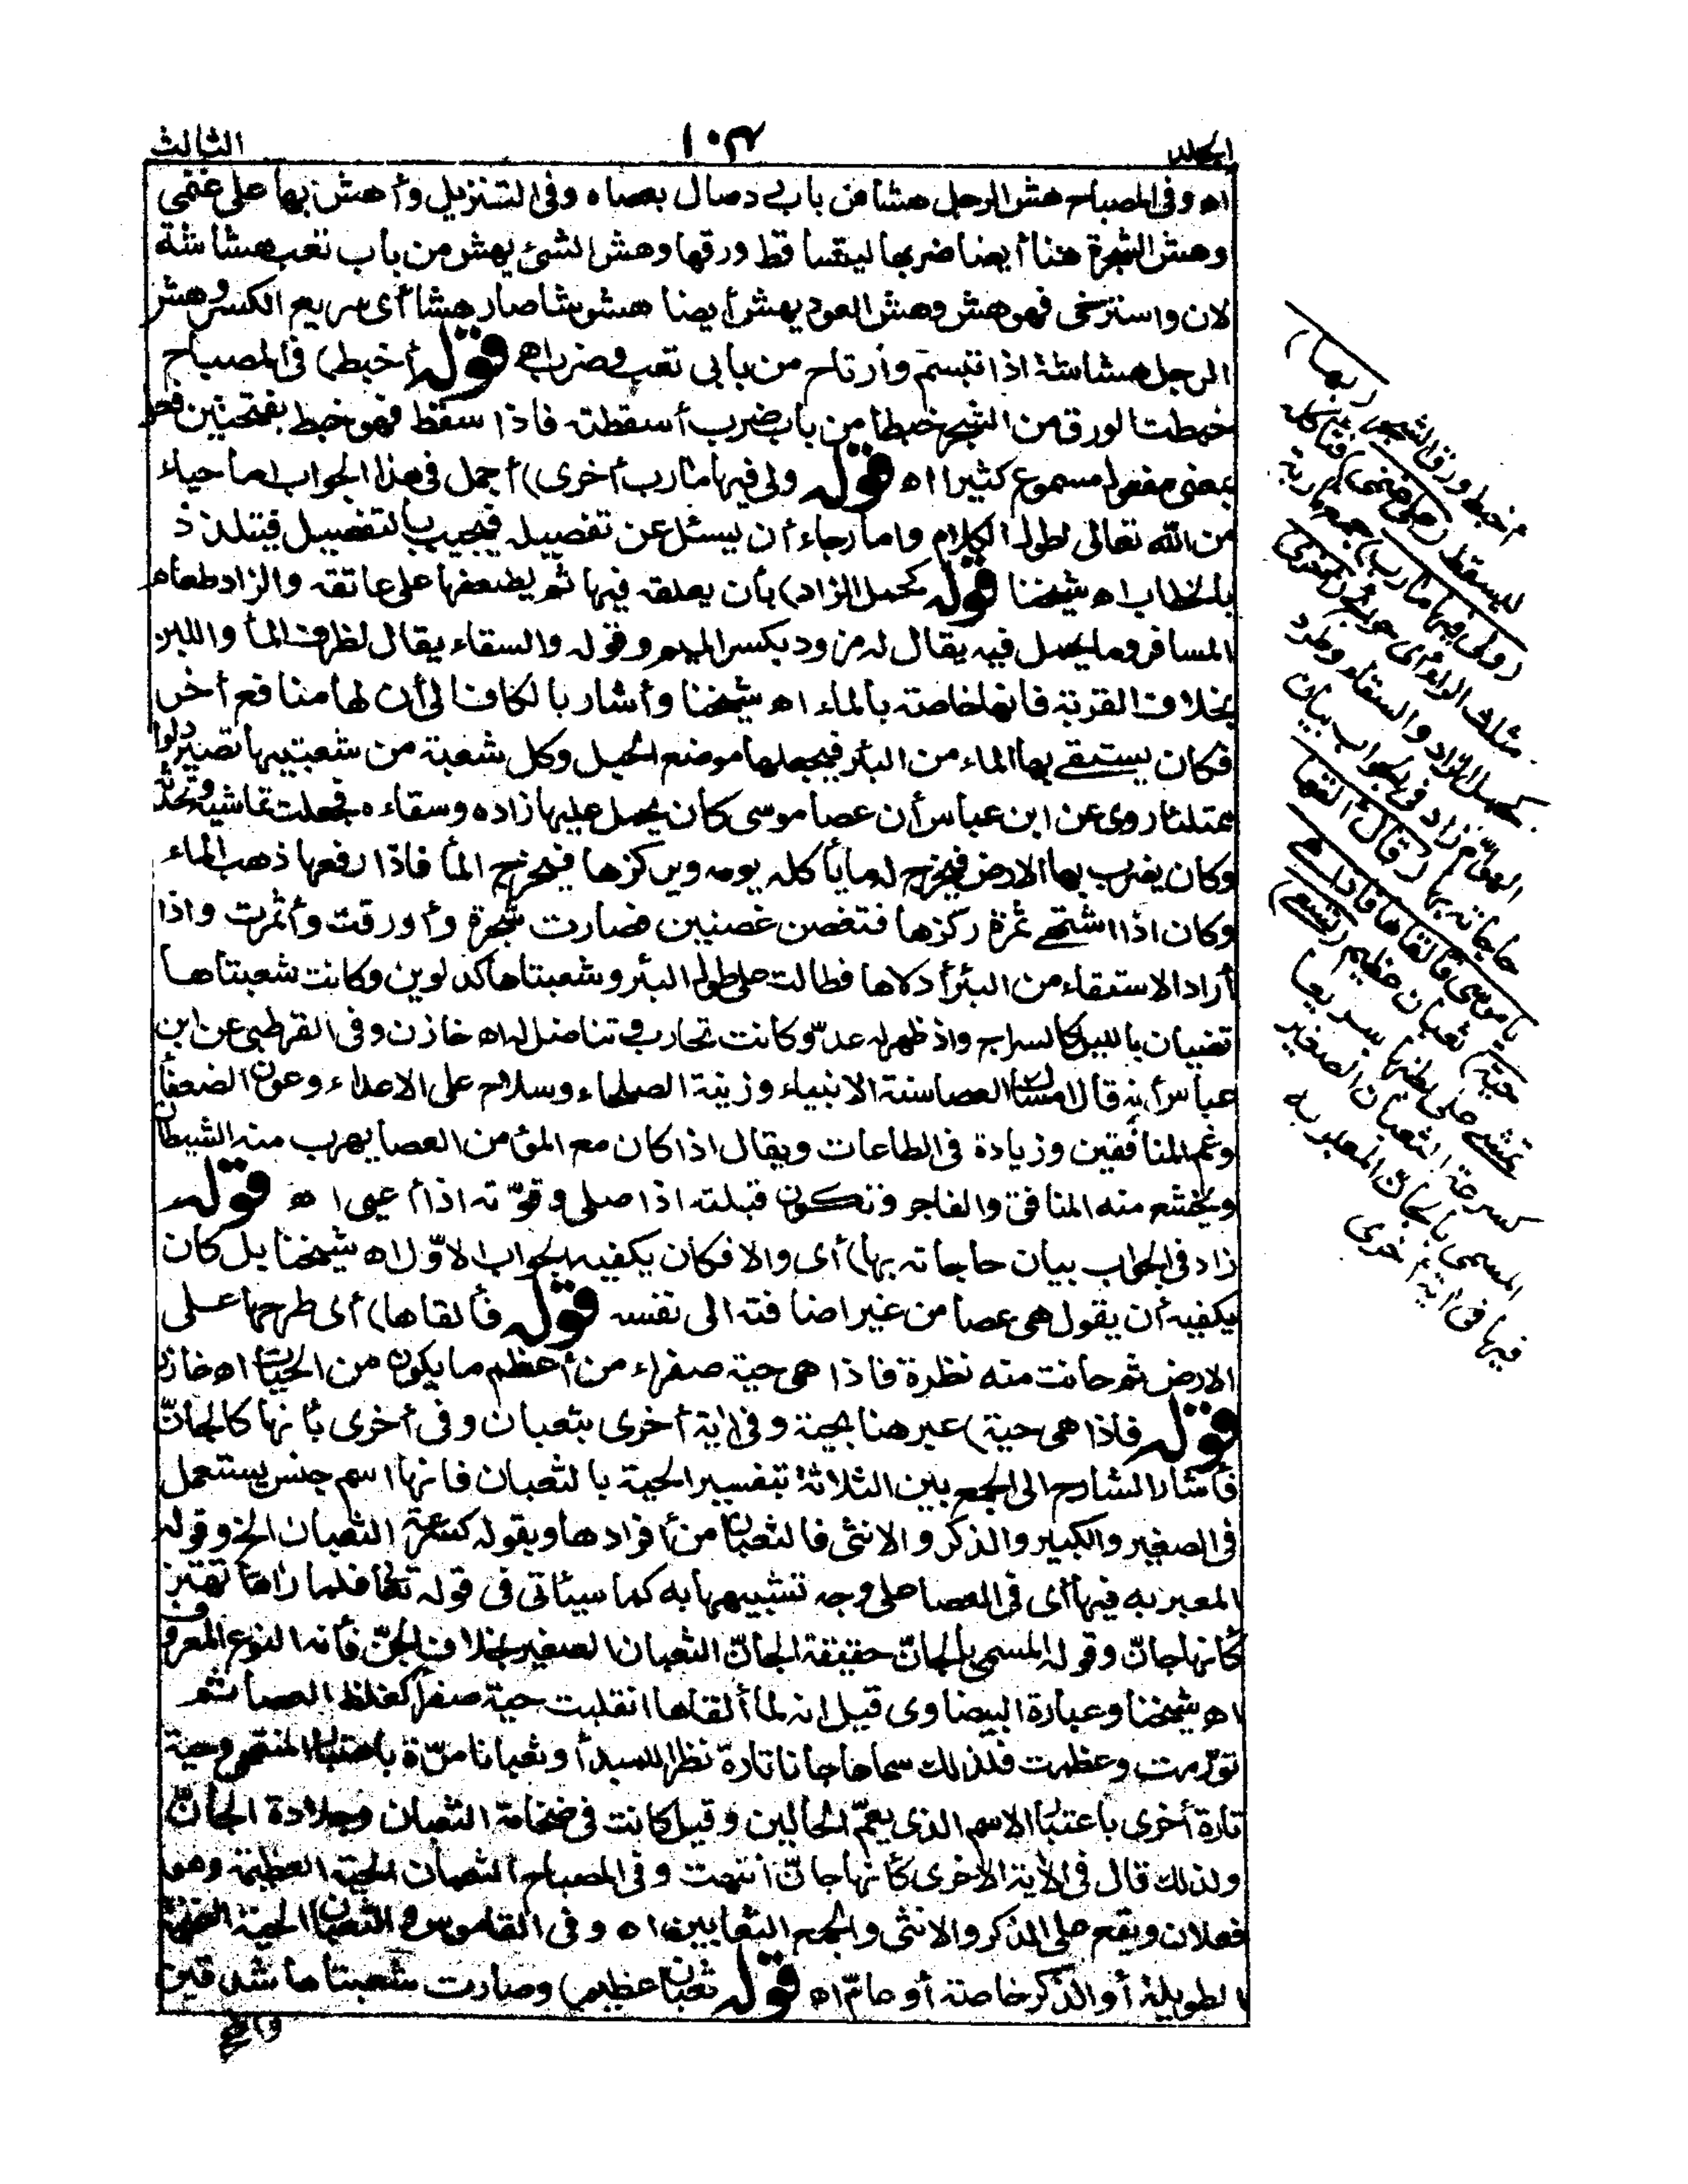 الجلد ١٠٣ الثالث
اه وفى المصباح هش الرجل هشا من باب دصال بعصاه وفى التنزيل وأهش بها على غنمى
وهش الشجرة هنا أيضا ضربها ليتساقط ورقها وهش الشئ يهش من باب تعب هشاشة
لان واسترخى فهو هش وهش العود يهش أيضا هشوشا صار هشا أى سريع الكسر وهش
الرجل هشاشة اذا تبسم وارتاح من بابى تعب وضرب اه قوله أخبط) فى المصباح
خبطت الورق من الشجر خبطا من باب ضرب أسقطته فاذا سقط فهو خبط بفتحتين فعل
بمعنى مفعول مسموع كثيرا اه قوله ولى فيها مأرب أخرى) أجمل فى هذا الجواب اما حياء
من الله تعالى لطول الكلام واما رجاء أن يسئل عن تفصيله فيجيب بالتفصيل فيتلذذ
بالخطاب اه شيخنا قوله كحمل الزاد) بأن يعلقه فيها ثم يضعها على عاتقه والزاد طعام
المسافر وما يحمل فيه يقال له مزود بكسر الميم وقوله والسقاء يقال لظرف الماء واللبن
بخلاف القربة فانها خاصة بالماء اه شيخنا وأشار بالكاف الى أن لها منافع أخر
فكان يستقى بها الماء من البئر فيجعلها موضع الحبل وكل شعبة من شعبتيها تصير دلوا
ممتلئا روى عن ابن عباس أن عصا موسى كان يحمل عليها زاده وسقاءه فجعلت تماشيه وتحدثه
وكان يضرب بها الارض فيخرج له ما يأكله يومه ويركزها فيخرج الماء فاذا رفعها ذهب الماء
وكان اذا اشتهى ثمرة ركزها فتغصن غصنين فصارت شجرة وأورقت وأثمرت واذا
أراد الاستقاء من البئر أدلاها فطالت على طول البئر وشعبتاها كدلوين وكانت شعبتاها
تضيان بالليل كالسراج واذ ظهر له عدو كانت تحارب وتناضل له اه خازن وفى القرطبى عن ابن
عباس أنه قال امساك العصا سنة الانبياء وزينة الصلحاء وسلاح على الاعداء وعون الضعفأ
وغم المنافقين وزيادة فى الطاعات ويقال اذا كان مع المؤمن العصا يهرب منه الشيطان
ويخشع منه المنافق والفاجر وتكون قبلته اذا صلى وقوته اذا أعيى اه قوله
زاد فى الجواب بيان حاجاته بها) أى والا فكان يكفيه الجواب الاول اه شيخنا بل كان
يكفيه أن يقول هى عصا من غير اضافته الى نفسه قوله فألقاها) أى طرحها على
الارض ثم حانت منه نظرة فاذا هى حية صفراء من أعظم ما يكون من الحيات اه خازن
قوله فاذا هى حية) عبر هنا بحية وفى آية أخرى بثعبان وفى أخرى بأنها كالجان
فأشار الشارح الى الجمع بين الثلاثة بتفسير الحية بالثعبان فانها اسم جنس يستعمل
فى الصغير والكبير والذكر والانثى فالثعبان من أفرادها وبقوله كسرعة الثعبان الخ وقوله
المعبر به فيها أى فى العصا على وجه تشبيهها به كما سيأتى فى قوله تعالى فلما رآها تهتز
كأنها جان وقوله المسمى بالجان حقيقة الجان الثعبان الصغير بخلاف الجن فأنه النوع المعروف
اه شيخنا وعبارة البيضاوى قيل انه لما ألقاها انقلبت حية صفرأ كغلظ العصا ثم
تورمت وعظمت فلذلك سماها جانا تارة نظرا للمبدأ وثعبانا مرة باعتبار المنتهى وحية
تارة أخرى باعتبار الاسم الذى يعم الحالين وقيل كانت فى ضخامة الثعبان وجلادة الجان
ولذلك قال فى الأية الاخرى كأنها جان انتهت وفى المصباح الثعبان الحية العظيمة وهو
فعلان ويقع على الذكر والانثى والجمع الثعابين اه وفى القاموس والثعبان الحية الضخمة
الطويلة أو الذكر خاصة أو عام اه قوله ثعبان عظيم) وصارت شعبتاها شدقين
(بها)
أخبط ورق الشجر
ليسقط (على غنمى) فتأكله
(ولى فيها مأرب) جمع مأربة
مثلث الراء أى حوائج (أخرى)
كحمل الزاد والسقاء وطرد
الهوام زاد فى الجواب بيان
حاجاته بها (قال ألقها
يا موسى فألقاها فاذا هى
حية) ثعبان عظيم (تسعى)
تمشى على بطنها سريعا
كسرعة الثعبان الصغير
المسمى بالجان المعبر به
فيها فى آية أخرى